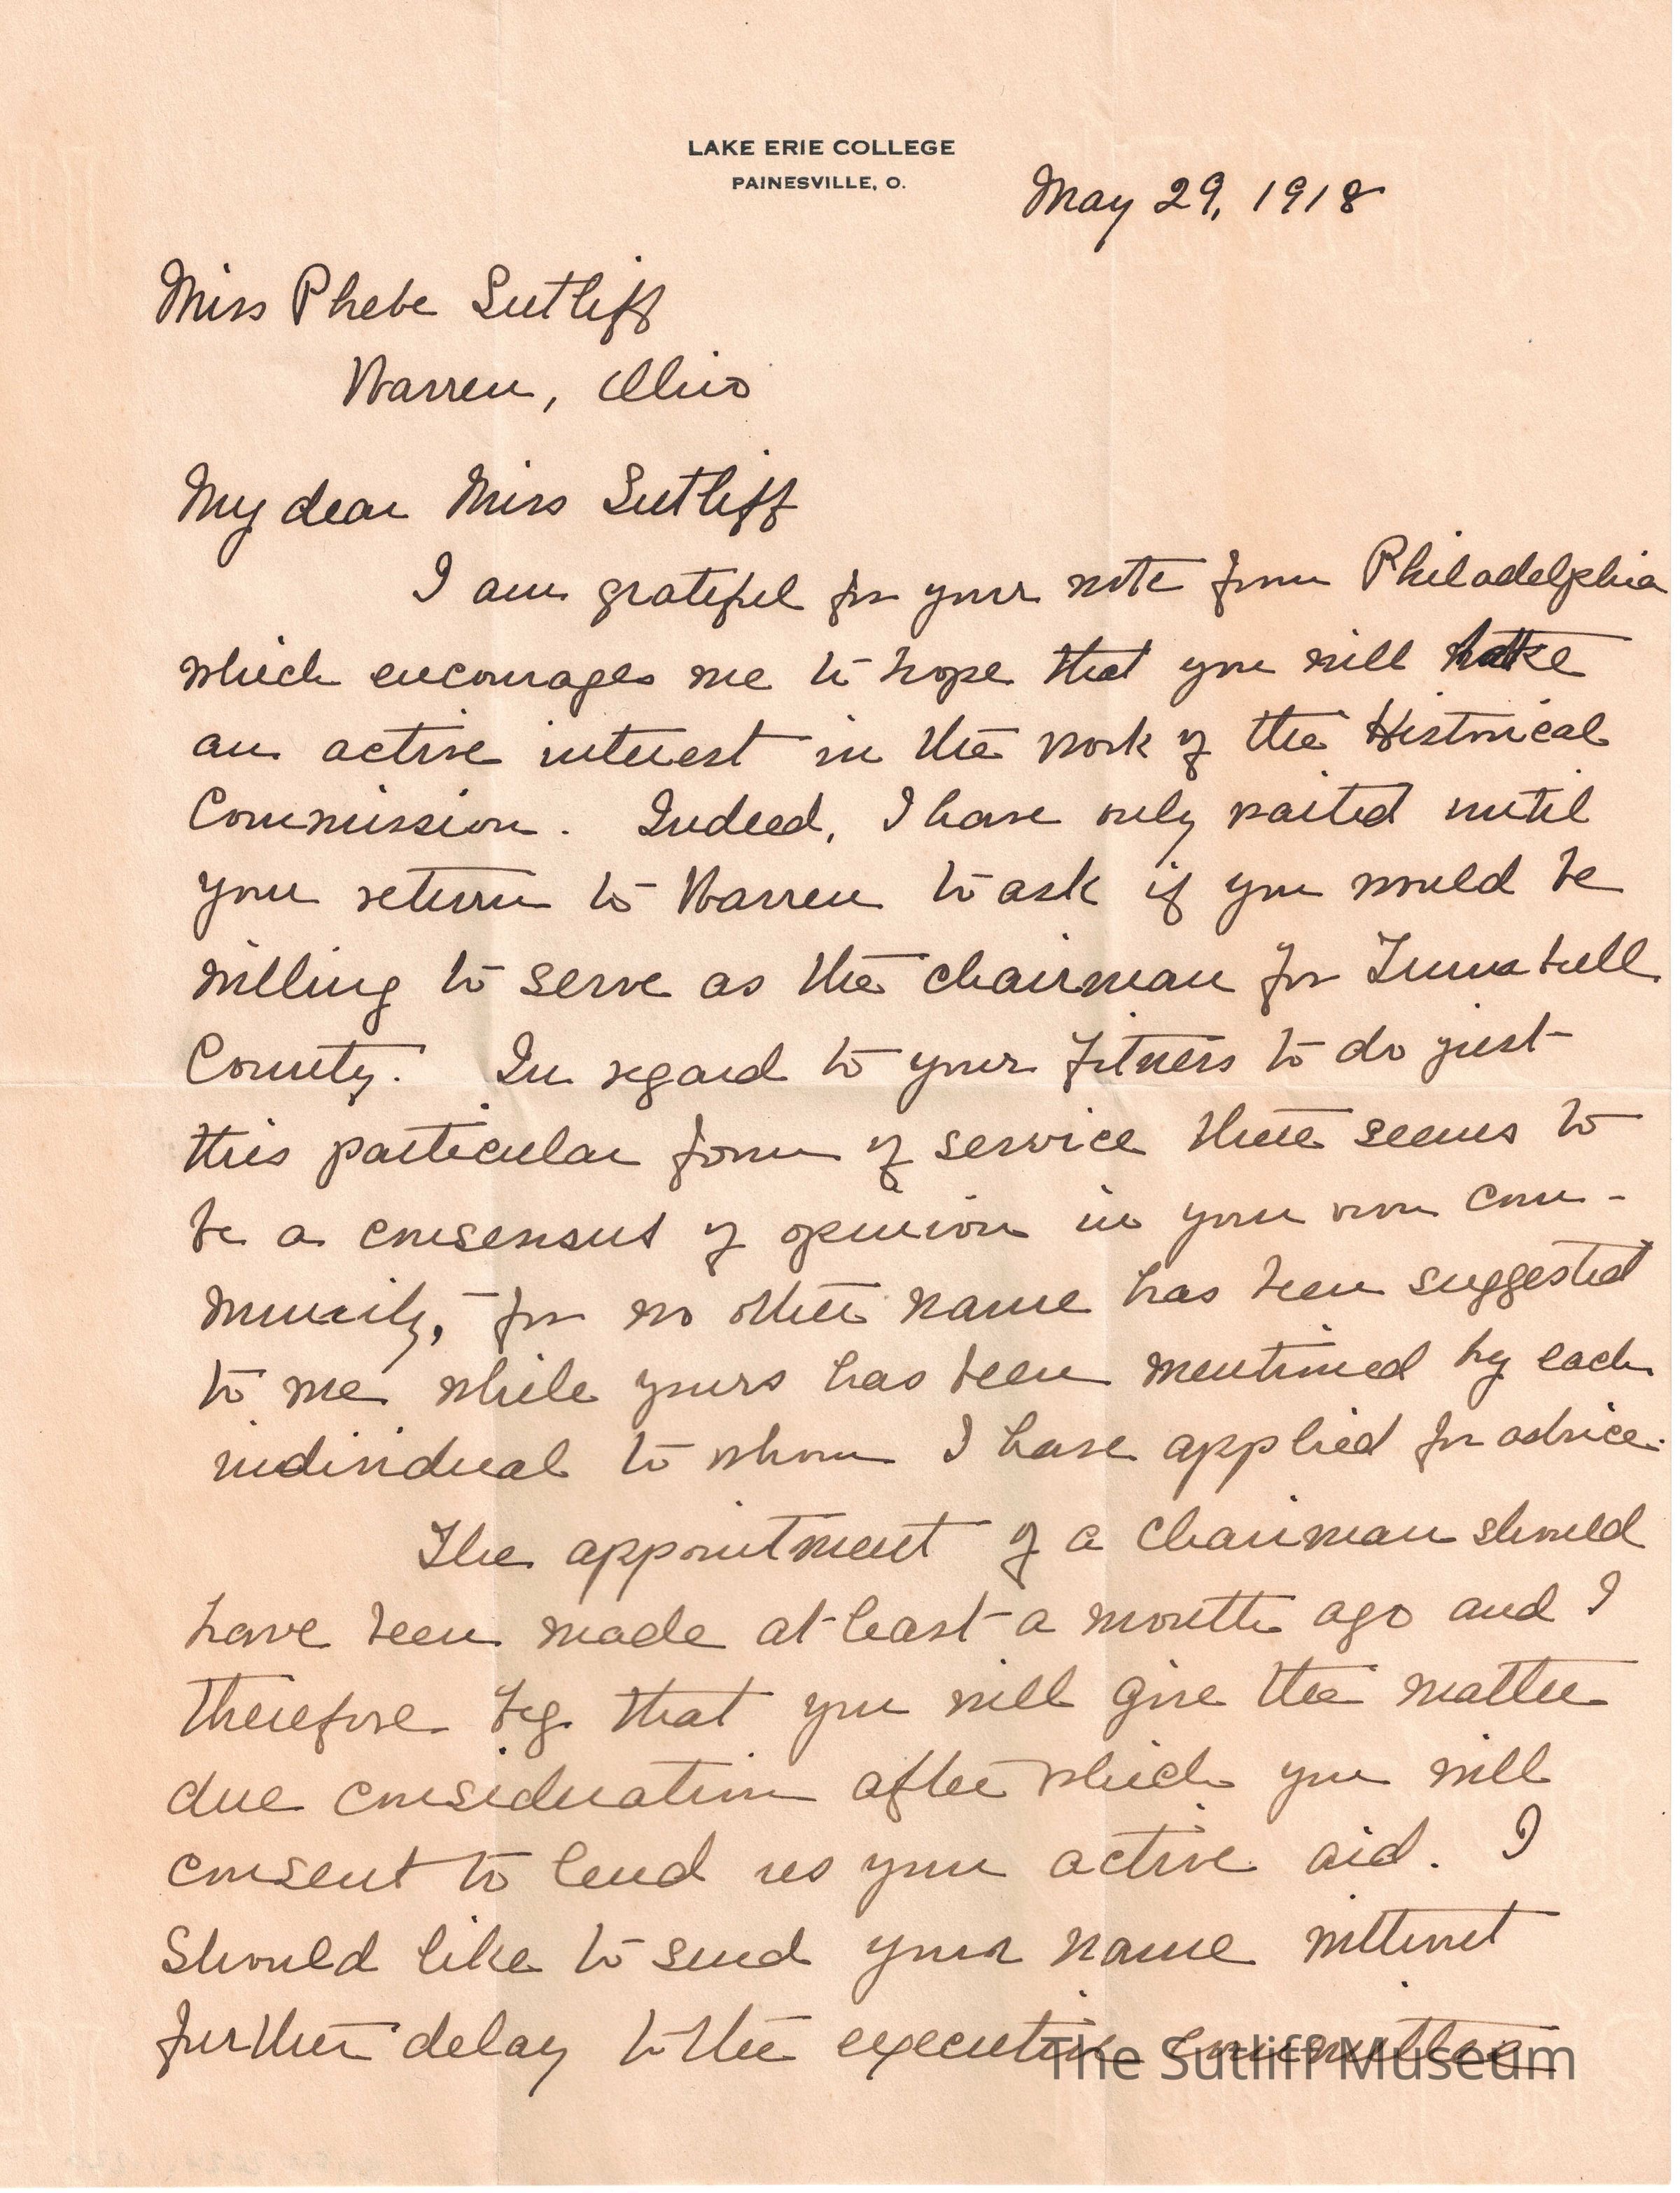 LAKE ERIE COLLEGE
PAINESVILLE, O.
May 29, 1918
Miss Phebe Sutliff
Warren, Ohio
My dear Miss Sutliff
I am grateful for your note from Philadelphia
which encourages me to hope that you will take
an active interest in the work of the Historical
Commission. Indeed, I have only waited until
your return to Warren to ask if you would be
willing to serve as the chairman for Trumbull
County. In regard to your fitness to do just
this particular form of service there seems to
be a consensus of opinion in your own com-
munity, - for no other name has been suggested
to me while yours has been mentioned by each
individual to whom I have applied for advice.
The appointment of a chairman should
have been made at least a month ago and I
therefore beg that you will give the matter
due consideration after which you will
consent to lend us your active aid. I
should like to send your name without
further delay to the executive committee
The Sutliff Museum